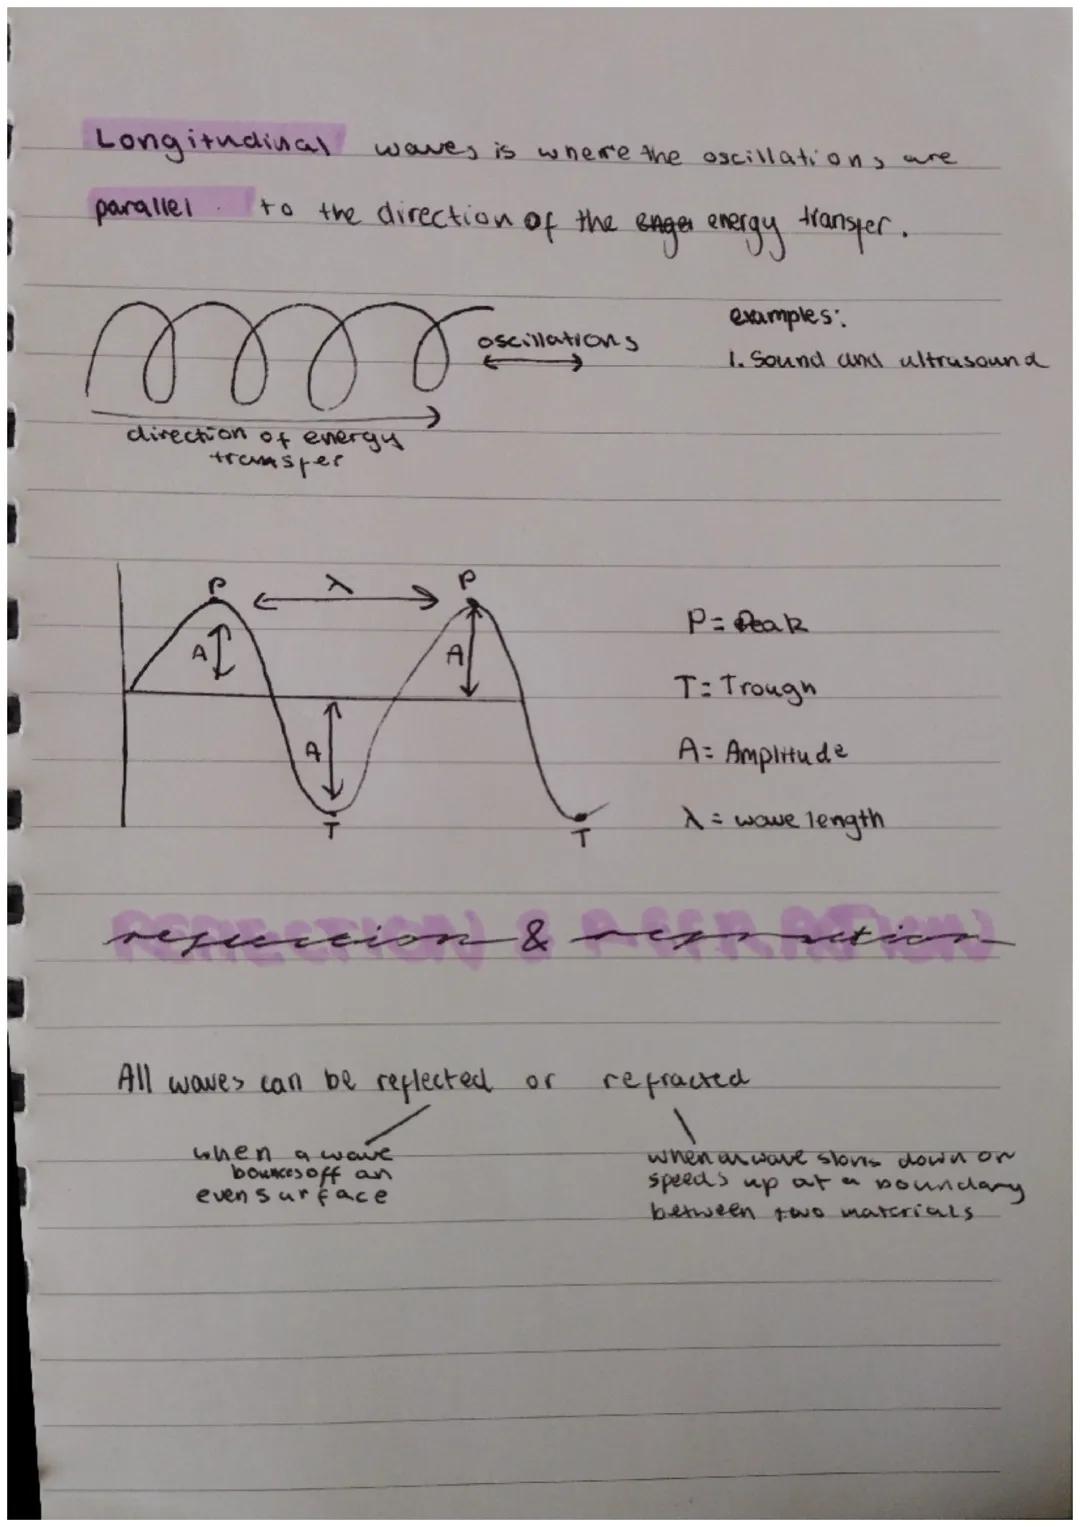 Longitudinal waves is where the oscillations are
parallel to the direction of the energy transfer.
oscillations
direction of energy
transfer
examples:
1. Sound and ultrasound
P λ P
A A
A
T T
P = Peak
T = Trough
A = Amplitude
λ = wave length
reflection & refraction
All waves can be reflected or refracted
when a wave
bounces off an
even surface
when a wave slows down or
speeds up at a boundary
between two materials